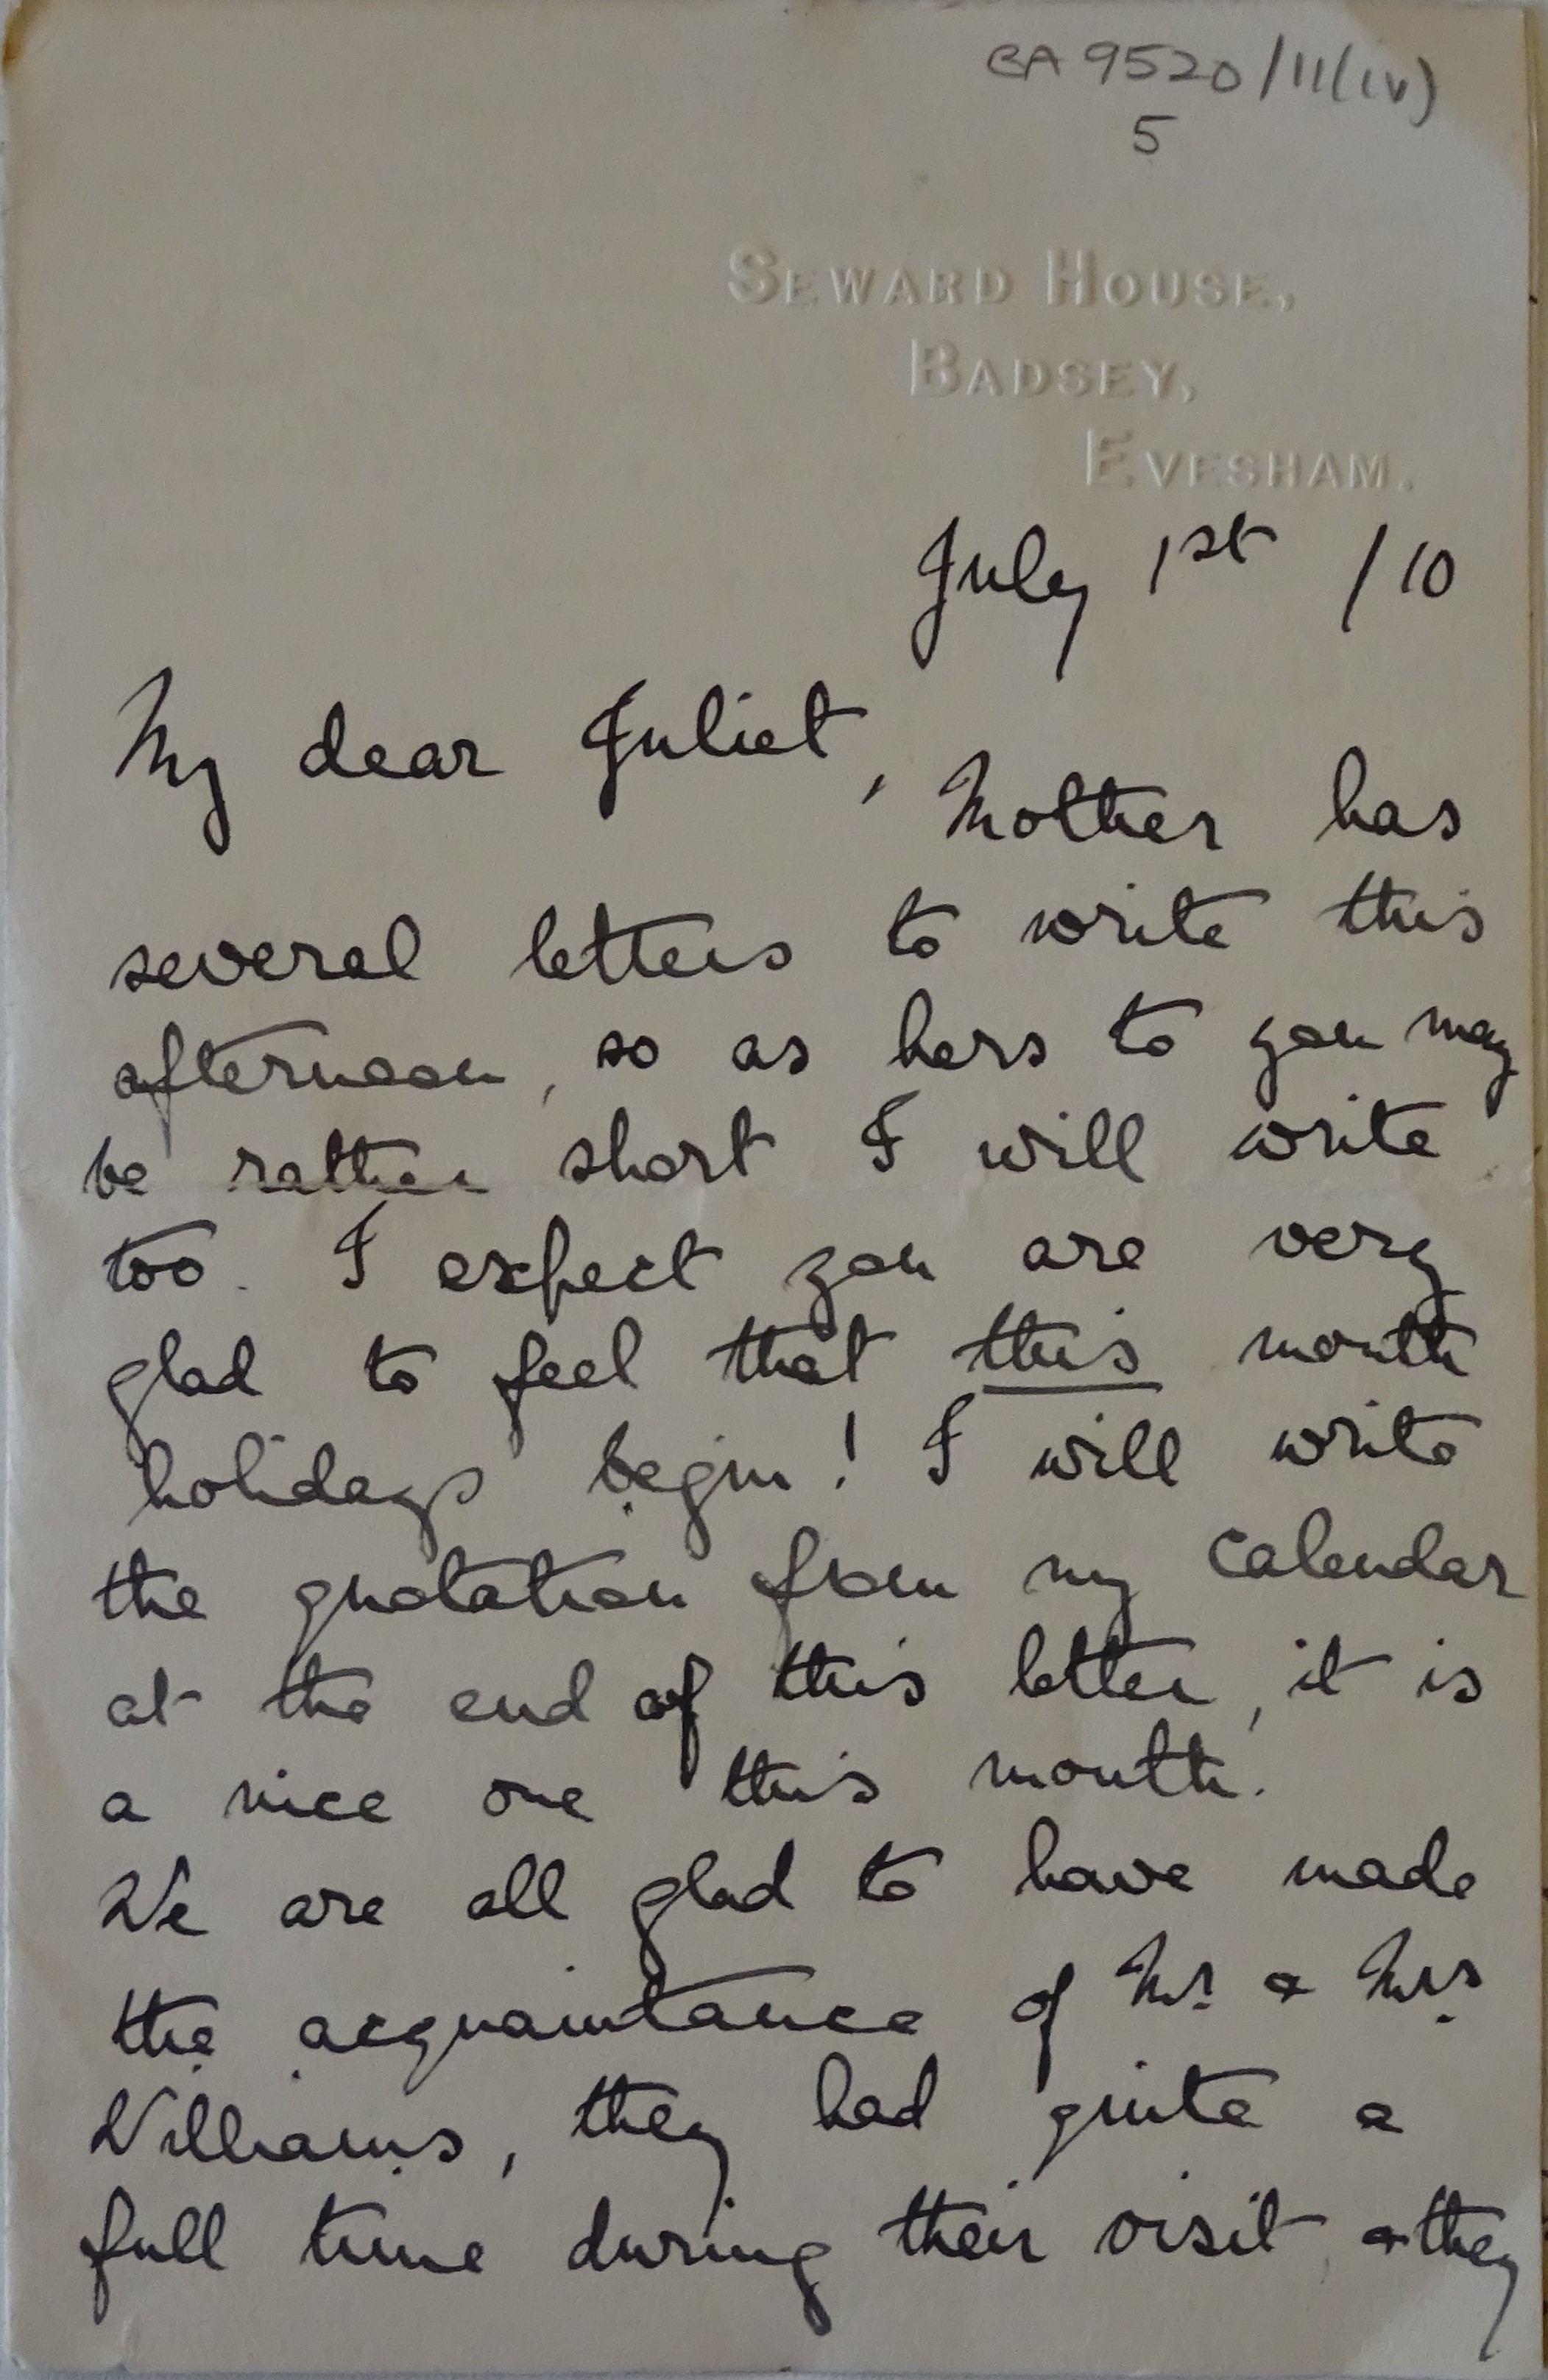 BA 9520/11(iv)
5
SEWARD HOUSE,
BADSEY,
EVESHAM.
July 1st /10
My dear Juliet,
Mother has
several letters to write this
afternoon, so as hers to you may
be rather short I will write
too. I expect you are very
glad to feel that this month
holidays begin! I will write
the quotation from my calendar
at the end of this letter, it is
a nice one this month.
We are all glad to have made
the acquaintance of Mr. & Mrs.
Williams, they had quite a
full time during their visit, & they